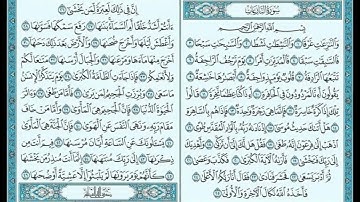 سُورَةُ النَّازِعَاتِ
بِسْمِ اللَّهِ الرَّحْمَٰنِ الرَّحِيمِ
وَالنَّازِعَاتِ غَرْقًا ١ وَالنَّاشِطَاتِ نَشْطًا ٢ وَالسَّابِحَاتِ سَبْحًا ٣
فَالسَّابِقَاتِ سَبْقًا ٤ فَالْمُدَبِّرَاتِ أَمْرًا ٥ يَوْمَ تَرْجُفُ الرَّاجِفَةُ ٦
تَتْبَعُهَا الرَّادِفَةُ ٧ قُلُوبٌ يَوْمَئِذٍ وَاجِفَةٌ ٨ أَبْصَارُهَا خَاشِعَةٌ ٩
يَقُولُونَ أَءِنَّا لَمَرْدُودُونَ فِي الْحَافِرَةِ ١٠ أَءِذَا كُنَّا عِظَامًا نَّخِرَةً ١١
قَالُوا تِلْكَ إِذًا كَرَّةٌ خَاسِرَةٌ ١٢ فَإِنَّمَا هِيَ زَجْرَةٌ وَاحِدَةٌ ١٣ فَإِذَا هُم بِالسَّاهِرَةِ ١٤
هَلْ أَتَاكَ حَدِيثُ مُوسَىٰ ١٥ إِذْ نَادَاهُ رَبُّهُ بِالْوَادِ الْمُقَدَّسِ طُوًى ١٦
اذْهَبْ إِلَىٰ فِرْعَوْنَ إِنَّهُ طَغَىٰ ١٧ فَقُلْ هَل لَّكَ إِلَىٰ أَن تَزَكَّىٰ ١٨
وَأَهْدِيَكَ إِلَىٰ رَبِّكَ فَتَخْشَىٰ ١٩ فَأَرَاهُ الْآيَةَ الْكُبْرَىٰ ٢٠ فَكَذَّبَ وَعَصَىٰ ٢١
ثُمَّ أَدْبَرَ يَسْعَىٰ ٢٢ فَحَشَرَ فَنَادَىٰ ٢٣ فَقَالَ أَنَا رَبُّكُمُ الْأَعْلَىٰ ٢٤
فَأَخَذَهُ اللَّهُ نَكَالَ الْآخِرَةِ وَالْأُولَىٰ ٢٥
إِنَّ فِي ذَٰلِكَ لَعِبْرَةً لِّمَن يَخْشَىٰ ٢٦
ءَأَنتُمْ أَشَدُّ خَلْقًا أَمِ السَّمَاءُ بَنَاهَا ٢٧ رَفَعَ سَمْكَهَا فَسَوَّاهَا ٢٨
وَأَغْطَشَ لَيْلَهَا وَأَخْرَجَ ضُحَاهَا ٢٩ وَالْأَرْضَ بَعْدَ ذَٰلِكَ دَحَاهَا ٣٠
أَخْرَجَ مِنْهَا مَاءَهَا وَمَرْعَاهَا ٣١ وَالْجِبَالَ أَرْسَاهَا ٣٢ مَتَاعًا لَّكُمْ
وَلِأَنْعَامِكُمْ ٣٣ فَإِذَا جَاءَتِ الطَّامَّةُ الْكُبْرَىٰ ٣٤ يَوْمَ يَتَذَكَّرُ الْإِنسَانُ
مَا سَعَىٰ ٣٥ وَبُرِّزَتِ الْجَحِيمُ لِمَن يَرَىٰ ٣٦ فَأَمَّا مَن طَغَىٰ ٣٧ وَآثَرَ
الْحَيَوٰةَ الدُّنْيَا ٣٨ فَإِنَّ الْجَحِيمَ هِيَ الْمَأْوَىٰ ٣٩ وَأَمَّا مَنْ خَافَ
مَقَامَ رَبِّهِ وَنَهَى النَّفْسَ عَنِ الْهَوَىٰ ٤٠ فَإِنَّ الْجَنَّةَ هِيَ الْمَأْوَىٰ ٤١
يَسْأَلُونَكَ عَنِ السَّاعَةِ أَيَّانَ مُرْسَاهَا ٤٢ فِيمَ أَنتَ مِن
ذِكْرَاهَا ٤٣ إِلَىٰ رَبِّكَ مُنتَهَاهَا ٤٤ إِنَّمَا أَنتَ مُنذِرُ مَن يَخْشَاهَا ٤٥
كَأَنَّهُمْ يَوْمَ يَرَوْنَهَا لَمْ يَلْبَثُوا إِلَّا عَشِيَّةً أَوْ ضُحَاهَا ٤٦